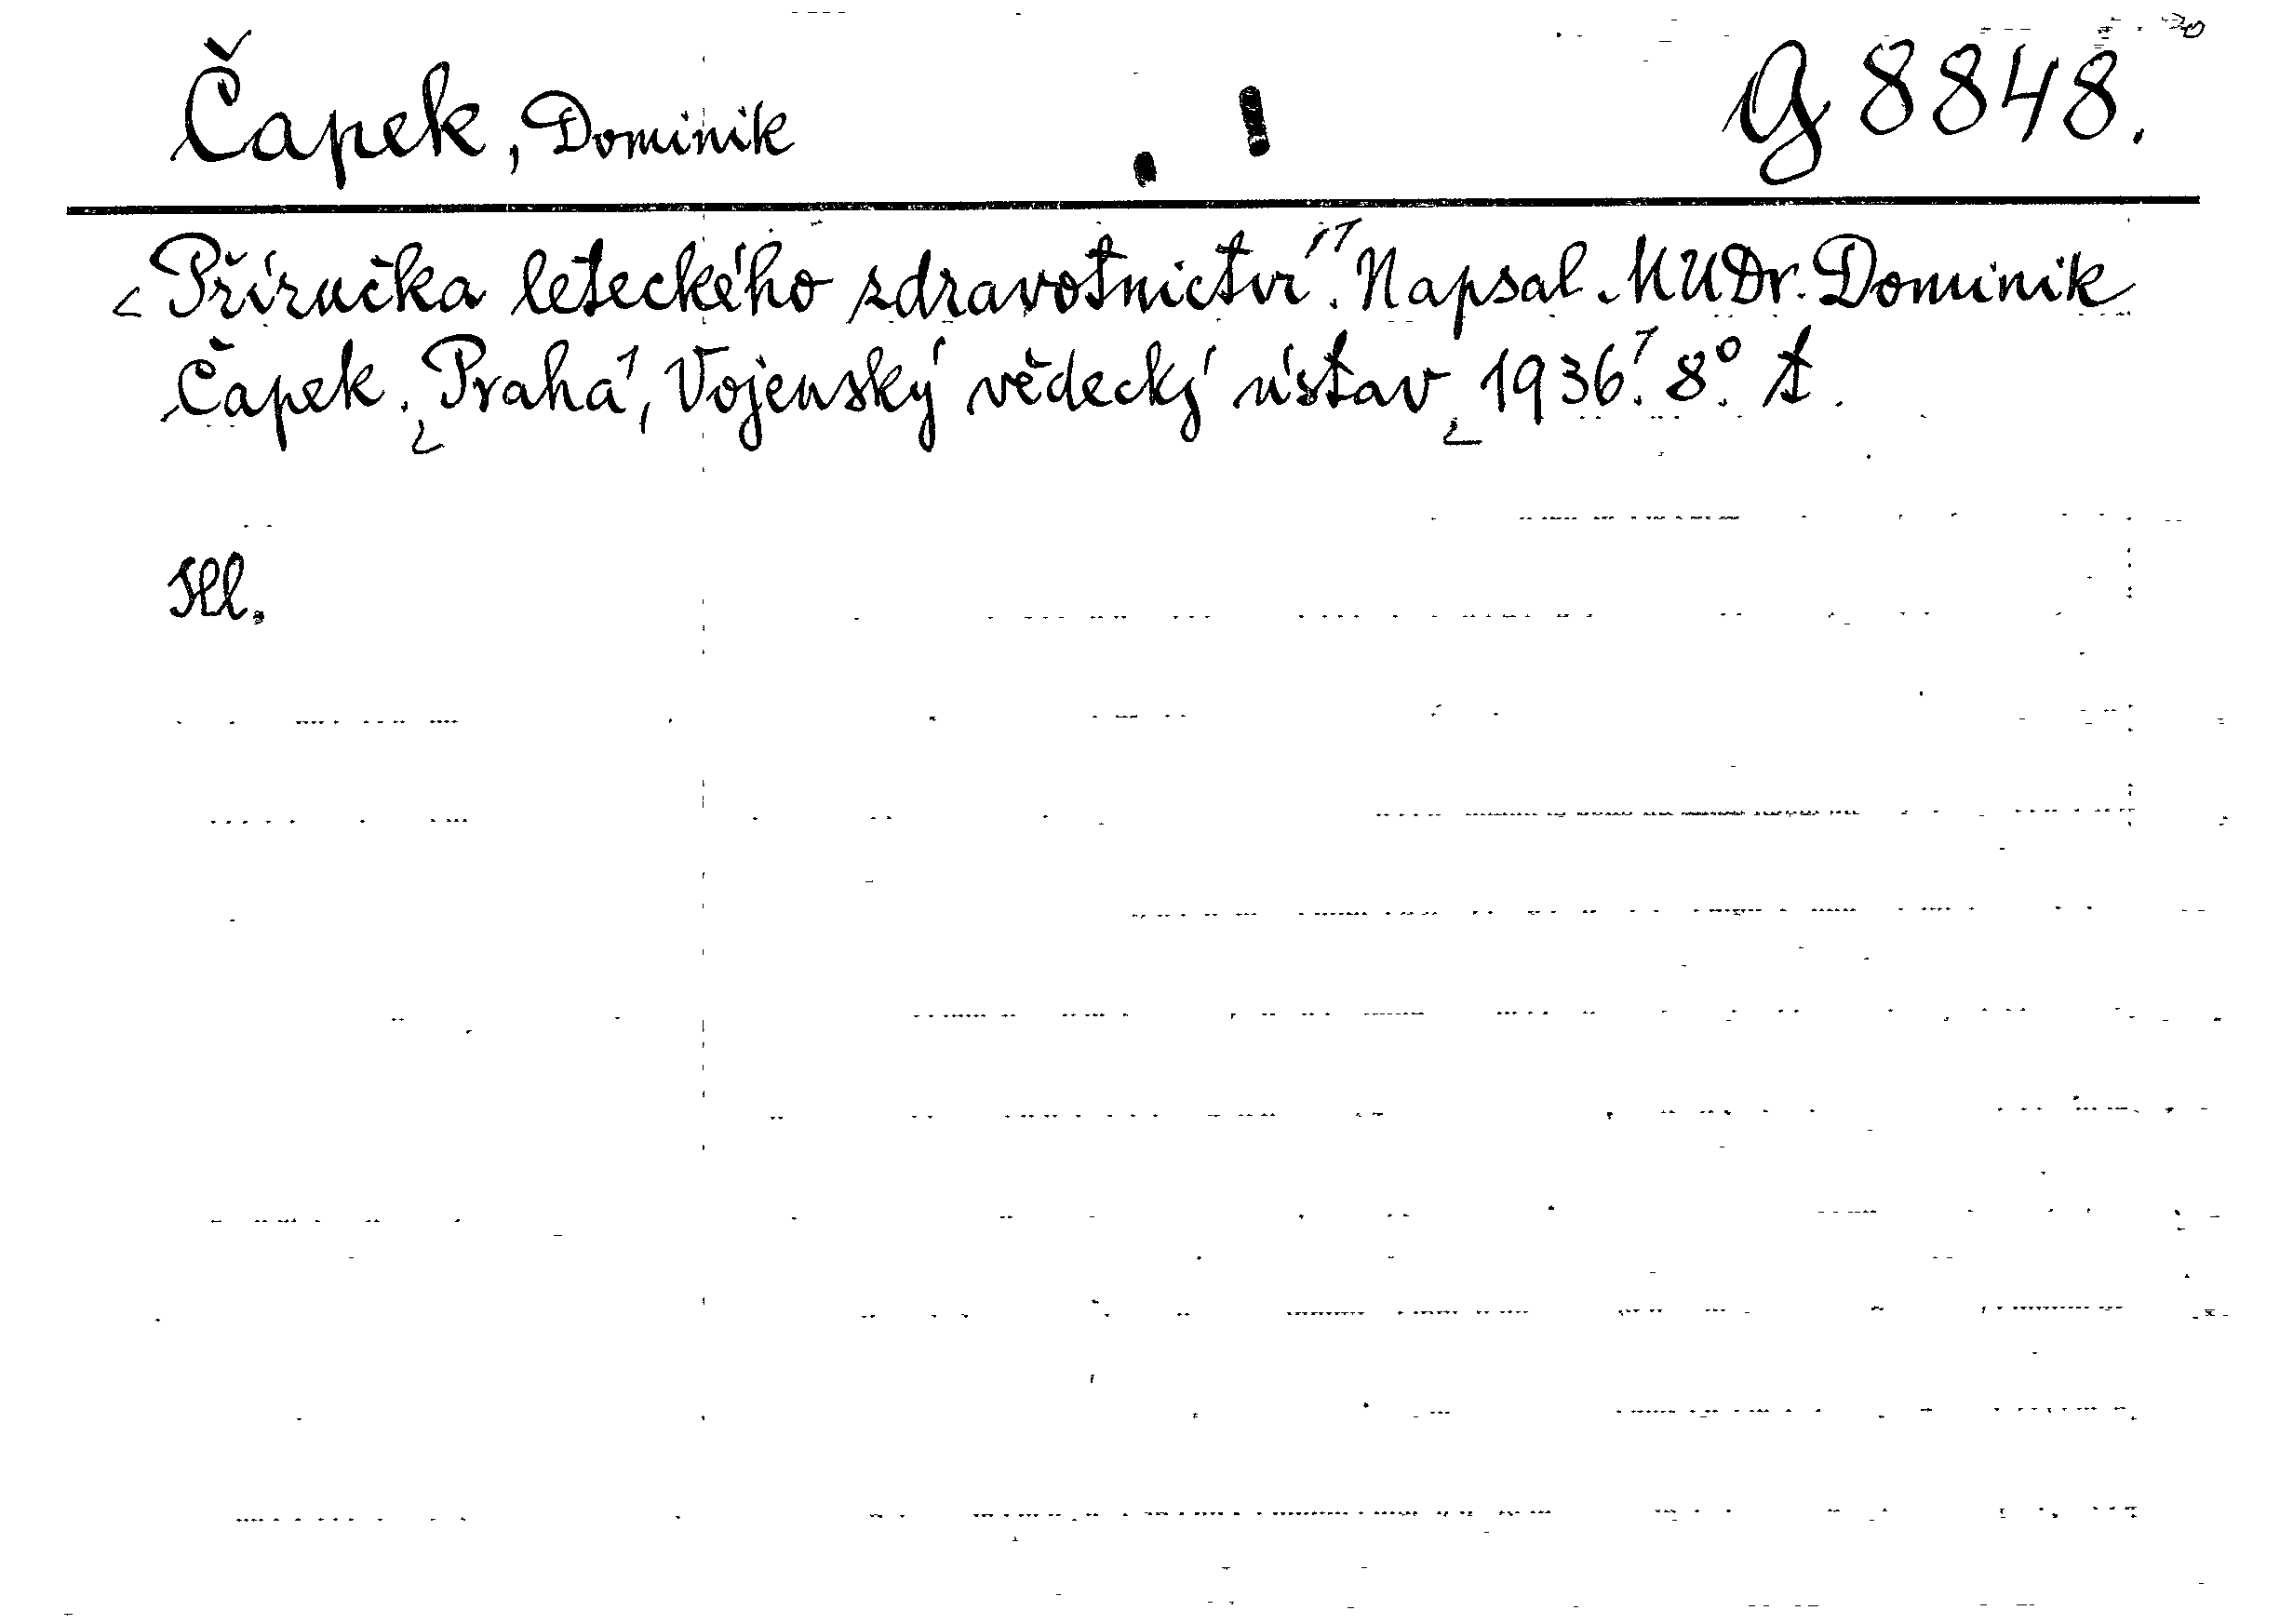 Čapek, Dominik G 8848.
Příručka leteckého zdravotnictví. Napsal MUDr. Dominik
Čapek. Praha, Vojenský vědecký ústav, 1936. 8°. A.
Hl.